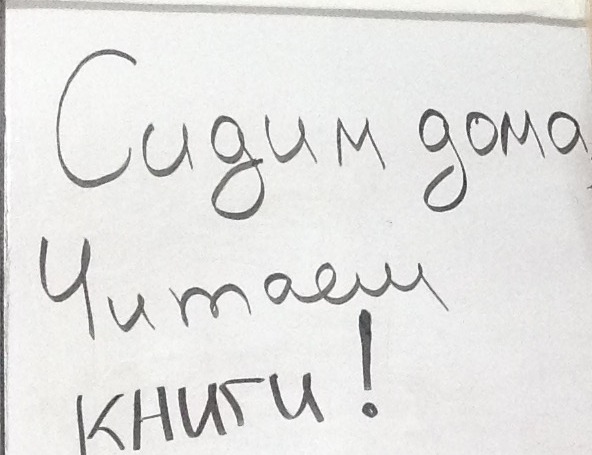 Сидим дома,
Читаем
книги!